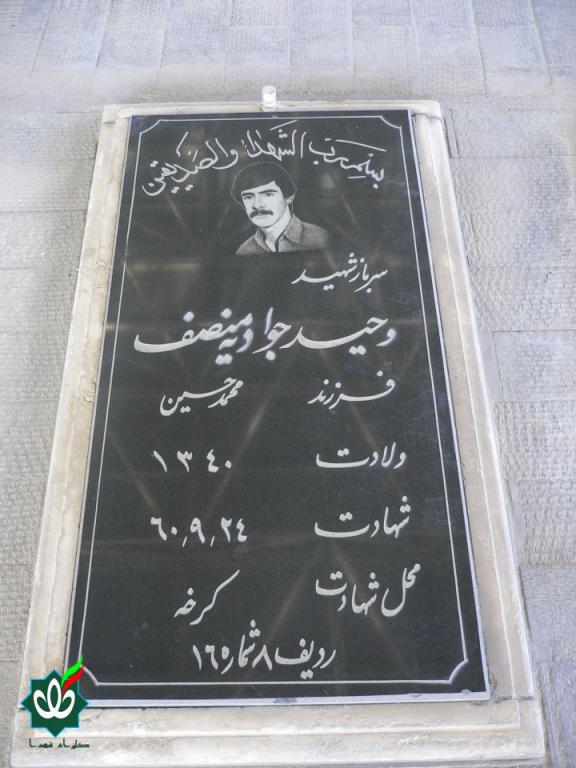 بسم رب الشهداء والصدیقین
سرباز شهید
وحید جوادیه منصف
فرزند محمدحسین
ولادت ۱۳۴۰
شهادت ۶۰٫۹٫۲۴
محل شهادت کرخه
ردیف ۸ شماره ۱۶
گلزار شهدا